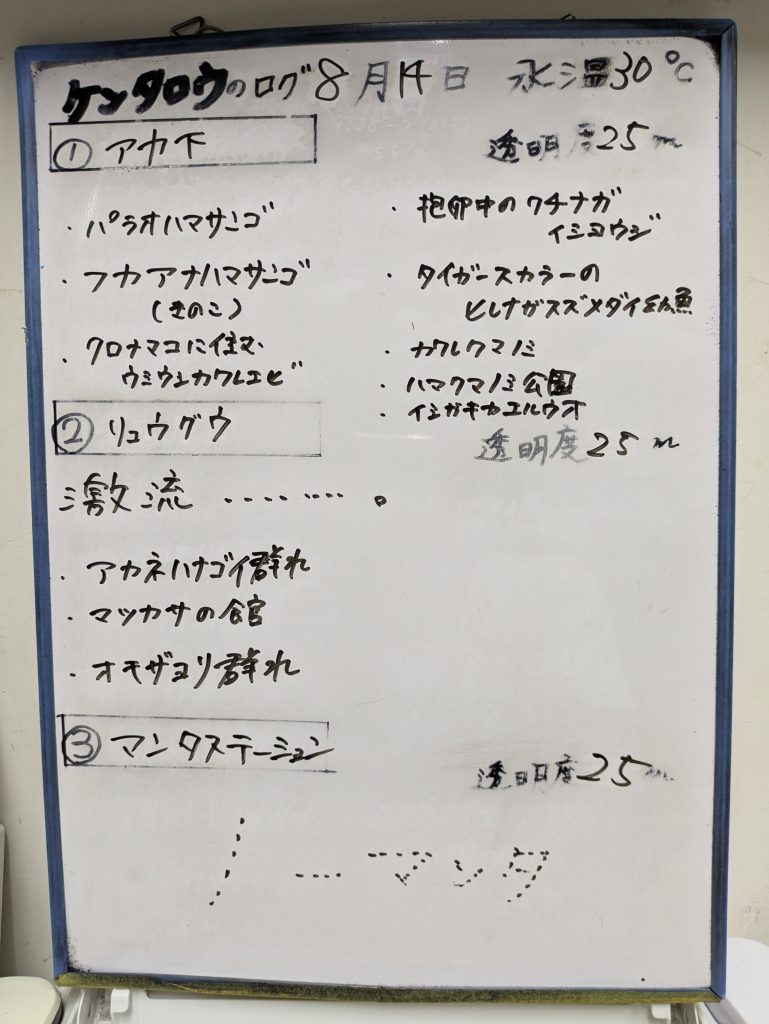 ケンタロウのログ 8月14日 水温30℃
① アカ下
透明度25m
・パラオハマサンゴ
・フカアナハマサンゴ
(きのこ)
・クロナマコに住む
ウミウシカクレエビ
・抱卵中のクチナガ
イシヨウジ
・タイガースカラーの
ヒレナガスズメダイ幼魚
・カクレクマノミ
・ハマクマノミ公園
・イシガキカエルウオ
② リュウグウ
透明度25m
激流 ‥‥‥‥‥。
・アカネハナゴイ群れ
・マツカサの館
・オキザヨリ群れ
③ マンタステーション
透明度25m
ノーマンタ